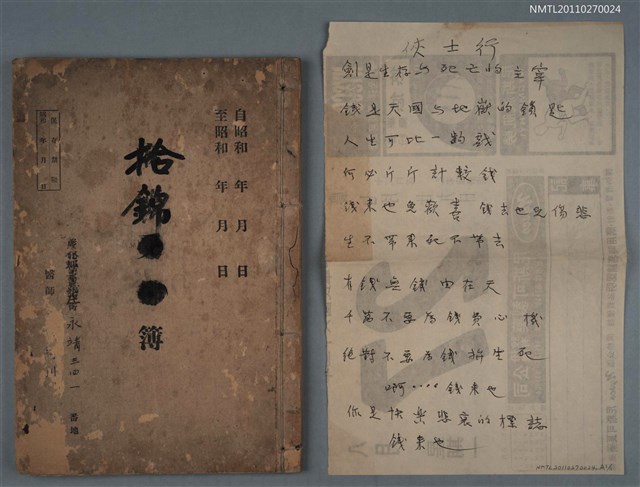 NMTL20110270024
自昭和 年 月 日
至昭和 年 月 日
拾錦
簿
醫師
永靖三四一
番地
俠士行
劍是生存与死亡的主宰
錢是天國与地獄的鎖匙
人生可比一齣戲
何必斤斤計較錢
錢來也免歡喜 錢去也免傷悲
生不帶來死不帶去
有錢無錢由在天
千萬不要為錢費心機
絕對不要為錢拚生死
啊‥‥錢來也
你是快樂悲哀的標誌
錢來也